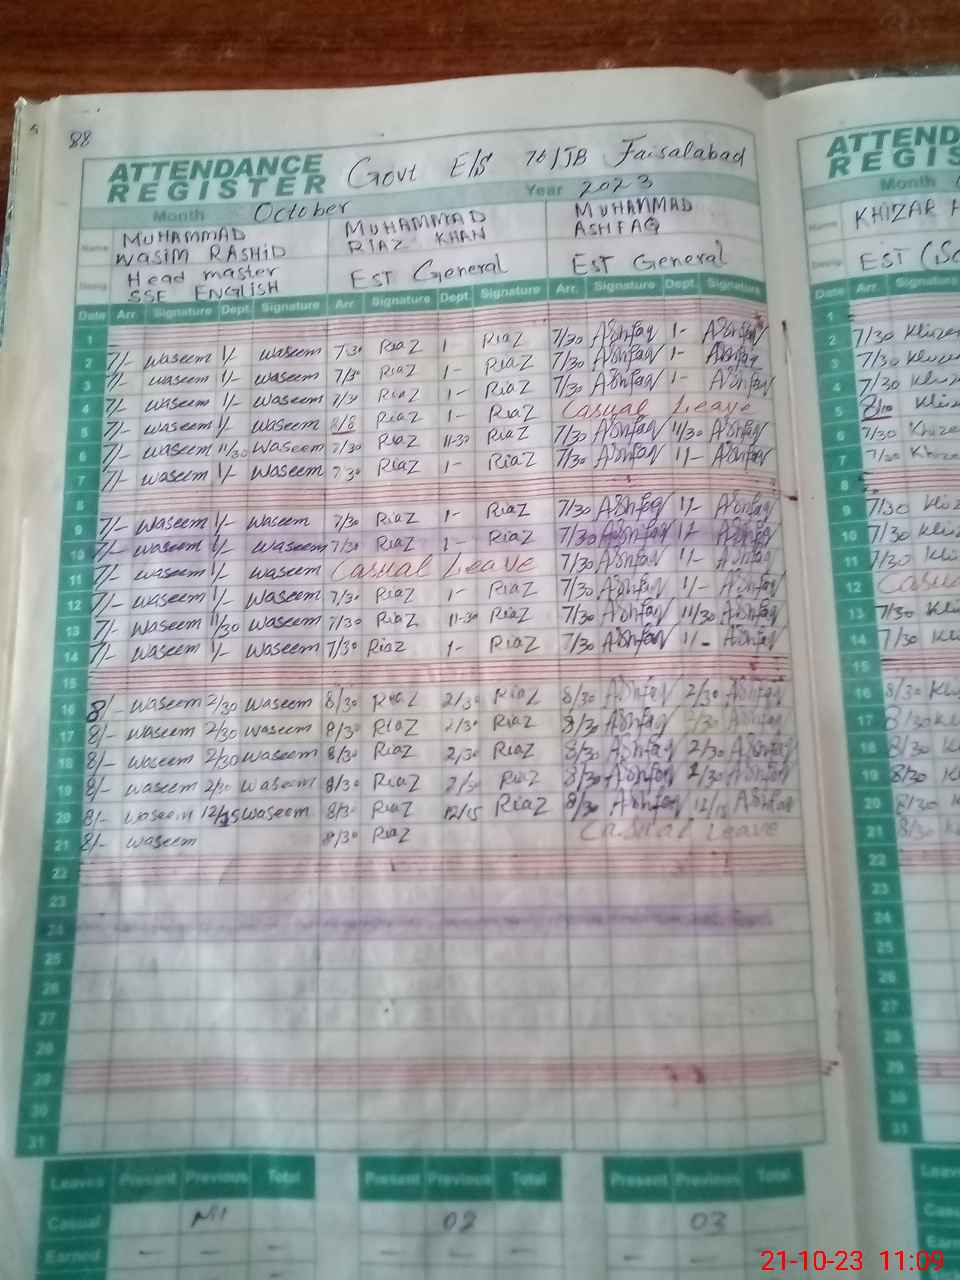 88
ATTENDANCE REGISTER Govt E/S 76/JB Faisalabad
Month October Year 2023
Name MUHAMMAD WASIM RASHID MUHAMMAD RIAZ KHAN MUHAMMAD ASHFAQ
Desig. Head master SSE ENGLISH EST General EST General
Date Arr. Signature Dept. Signature Arr. Signature Dept. Signature Arr. Signature Dept. Signature
1
2 7/- waseem 1/- waseem 7/30 Riaz 1- Riaz 7/30 Ashfaq 1- Ashfaq
3 7/- waseem 1/- waseem 7/30 Riaz 1- Riaz 7/30 Ashfaq 1- Ashfaq
4 7/- waseem 1/- waseem 7/30 Riaz 1- Riaz 7/30 Ashfaq 1- Ashfaq
5 7/- waseem 1/- waseem Riaz 1- Riaz Casual Leave
6 7/- waseem 11/30 waseem 7/30 Riaz 11-30 Riaz 7/30 Ashfaq 11/30 Ashfaq
7 7/- waseem 1/- waseem 7/30 Riaz 1- Riaz 7/30 Ashfaq 1/- Ashfaq
8
9 7/- waseem 1/- waseem 7/30 Riaz 1- Riaz 7/30 Ashfaq 1/- Ashfaq
10 7/- waseem 1/- waseem 7/30 Riaz 1- Riaz 7/30 Ashfaq 1/- Ashfaq
11 7/- waseem 1/- waseem Casual Leave 7/30 Ashfaq 1/- Ashfaq
12 7/- waseem 1/- waseem 7/30 Riaz 1- Riaz 7/30 Ashfaq 1/- Ashfaq
13 7/- waseem 11/30 waseem 7/30 Riaz 11-30 Riaz 7/30 Ashfaq 11/30 Ashfaq
14 7/- waseem 1/- waseem 7/30 Riaz 1- Riaz 7/30 Ashfaq 1/- Ashfaq
15
16 8/- waseem 2/30 waseem 8/30 Riaz 2/30 Riaz 8/30 Ashfaq 2/30 Ashfaq
17 8/- waseem 2/30 waseem 8/30 Riaz 2/30 Riaz 8/30 Ashfaq 2/30 Ashfaq
18 8/- waseem 2/30 waseem 8/30 Riaz 2/30 Riaz 8/30 Ashfaq 2/30 Ashfaq
19 8/- waseem 2/30 waseem 8/30 Riaz 2/30 Riaz 8/30 Ashfaq 2/30 Ashfaq
20 8/- waseem 12/15 waseem 8/30 Riaz 12/15 Riaz 8/30 Ashfaq 12/15 Ashfaq
21 8/- waseem 8/30 Riaz Casual Leave
22
23
24
25
26
27
28
29
30
31
Leaves Present Previous Total Present Previous Total Present Previous Total
Casual Nil 02 03
Earned - - - - - - - -
ATTEND
REGIS
Month
Name KHIZAR
Desig. EST
Date Arr. Signature
1
2 7/30
3 7/30
4 7/30
5
6 7/30
7 7/30
8
9 7/30
10 7/30
11 7/30
12
13 7/30
14 7/30
15
16 8/30
17 8/30
18 8/30
19 8/30
20 8/30
21 8/30
22
23
24
25
26
27
28
29
30
31
21-10-23 11:09